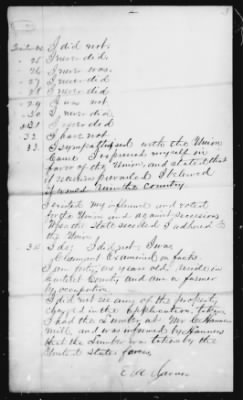 I did not.
25 I never did
26 I never was.
27 I never did
28 I never did
29 I was not
30 I never did
31 I never did
32 I have not.
33. I sympathised with the Union
Cause I expressed myself in
favor of the Union, and stated that
if secession prevailed I believed
it would ruin the country.
I exerted my influence and voted
for the Union and against secession
When the State seceded I adhered to
the Union.
I did not I was
Claimant Examined on facts.
I am forty years old reside in
County and am a farmer
by occupation.
I did not see any of the property
charged in the application, taken
I had the Lumber at
mill, and was informed by
that the Lumber was taken by the
United States forces,